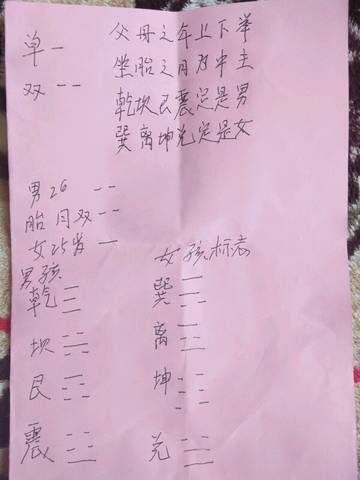 单 一
双 - -
父母之年上下举
坐胎之月为中主
乾坎艮震定是男
巽离坤兑定是女
男26 - -
胎月双 - -
女25岁 一
男孩
乾 ☰
坎 ☵
艮 ☶
震 ☳
女孩标志
巽 ☴
离 ☲
坤 ☷
兑 ☱